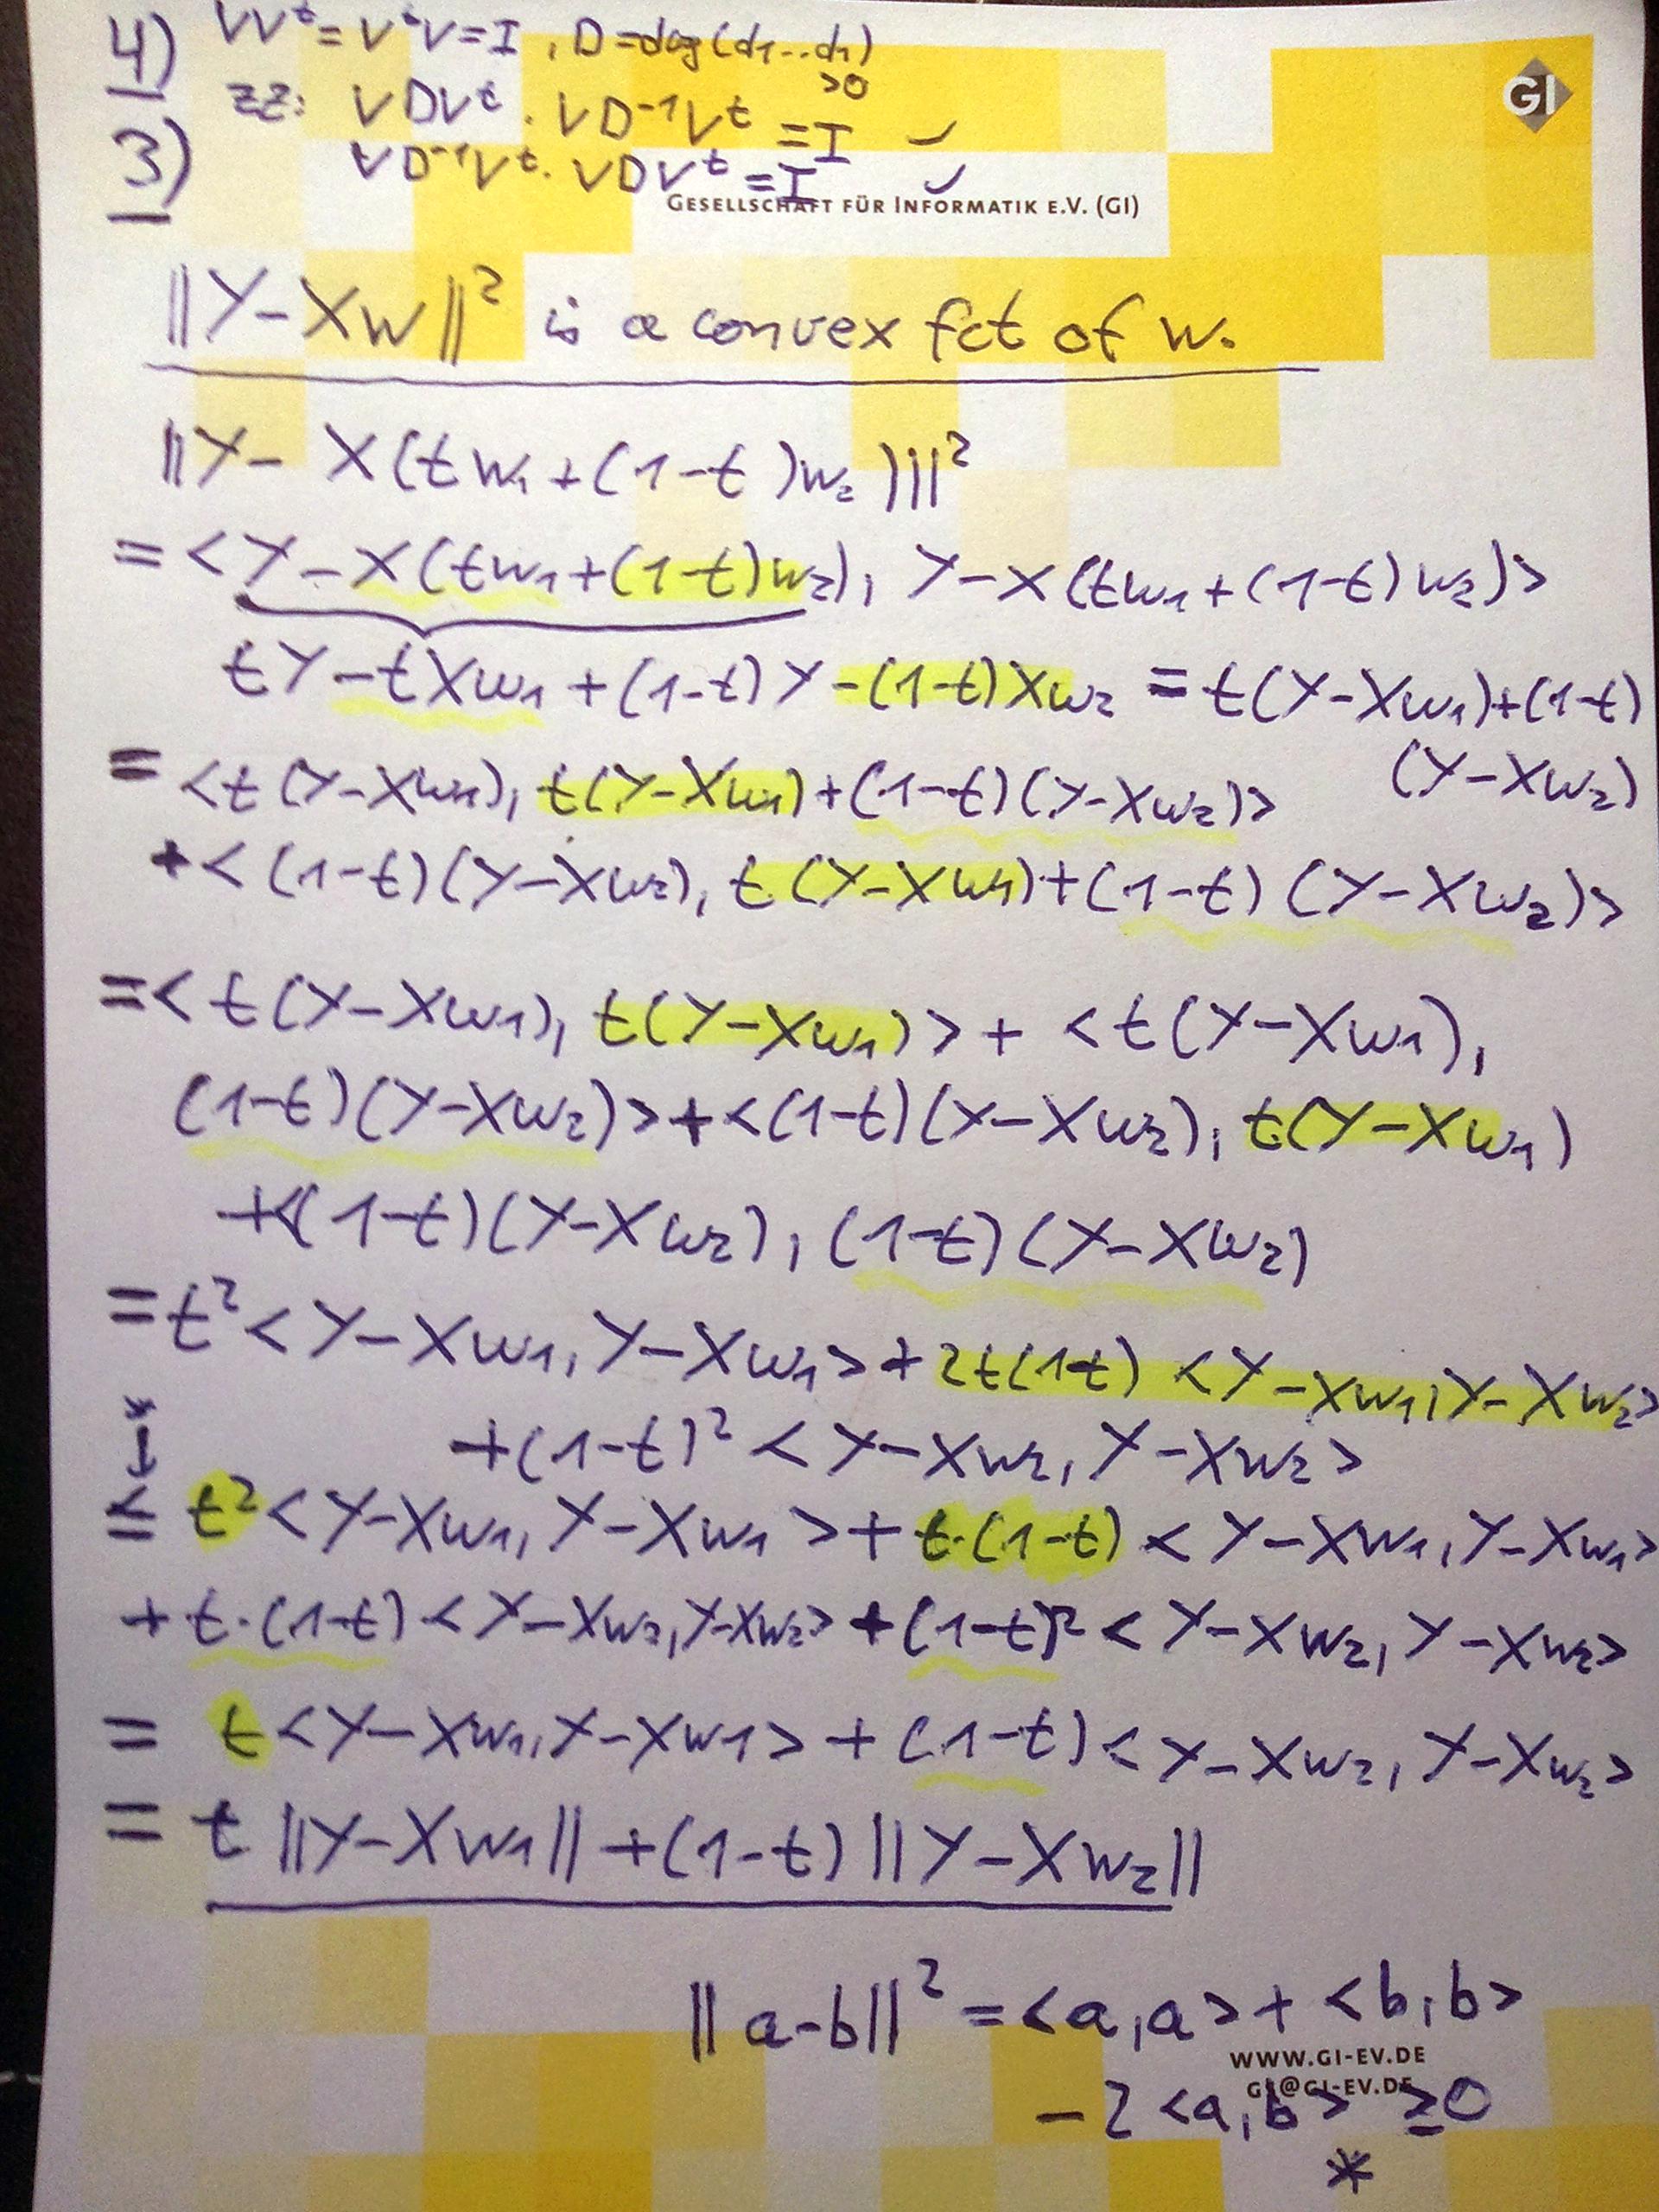 4) VVᵗ = VᵗV = I , D = diag(d1...d1)
>0
GI
zz: VDVᵗ . VD⁻¹Vᵗ = I ✓
3) VD⁻¹Vᵗ . VDVᵗ = I ✓
GESELLSCHAFT FÜR INFORMATIK E.V. (GI)
||Y-Xw||² is a convex fct of w.
||Y- X(tw₁+(1-t)w₂)||²
= <Y-X(tw₁+(1-t)w₂), Y-X(tw₁+(1-t)w₂)>
tY-tXw₁+(1-t)Y-(1-t)Xw₂ = t(Y-Xw₁)+(1-t)
(Y-Xw₂)
= <t(Y-Xw₁), t(Y-Xw₁)+(1-t)(Y-Xw₂)>
+<(1-t)(Y-Xw₂), t(Y-Xw₁)+(1-t)(Y-Xw₂)>
=<t(Y-Xw₁), t(Y-Xw₁)> + <t(Y-Xw₁),
(1-t)(Y-Xw₂)>+<(1-t)(Y-Xw₂), t(Y-Xw₁)
+<(1-t)(Y-Xw₂), (1-t)(Y-Xw₂)
=t²<Y-Xw₁, Y-Xw₁>+2t(1-t) <Y-Xw₁, Y-Xw₂>
+(1-t)²<Y-Xw₂, Y-Xw₂>
*
↓
≤ t²<Y-Xw₁, Y-Xw₁>+t·(1-t)<Y-Xw₁, Y-Xw₁>
+t·(1-t)<Y-Xw₂, Y-Xw₂>+(1-t)²<Y-Xw₂, Y-Xw₂>
= t<Y-Xw₁, Y-Xw1>+(1-t)<Y-Xw₂, Y-Xw₂>
= t||Y-Xw₁||+(1-t)||Y-Xw₂||
||a-b||²=<a,a>+<b,b>
WWW.GI-EV.DE
GI@GI-EV.DE
-2<a,b> ≥0
*